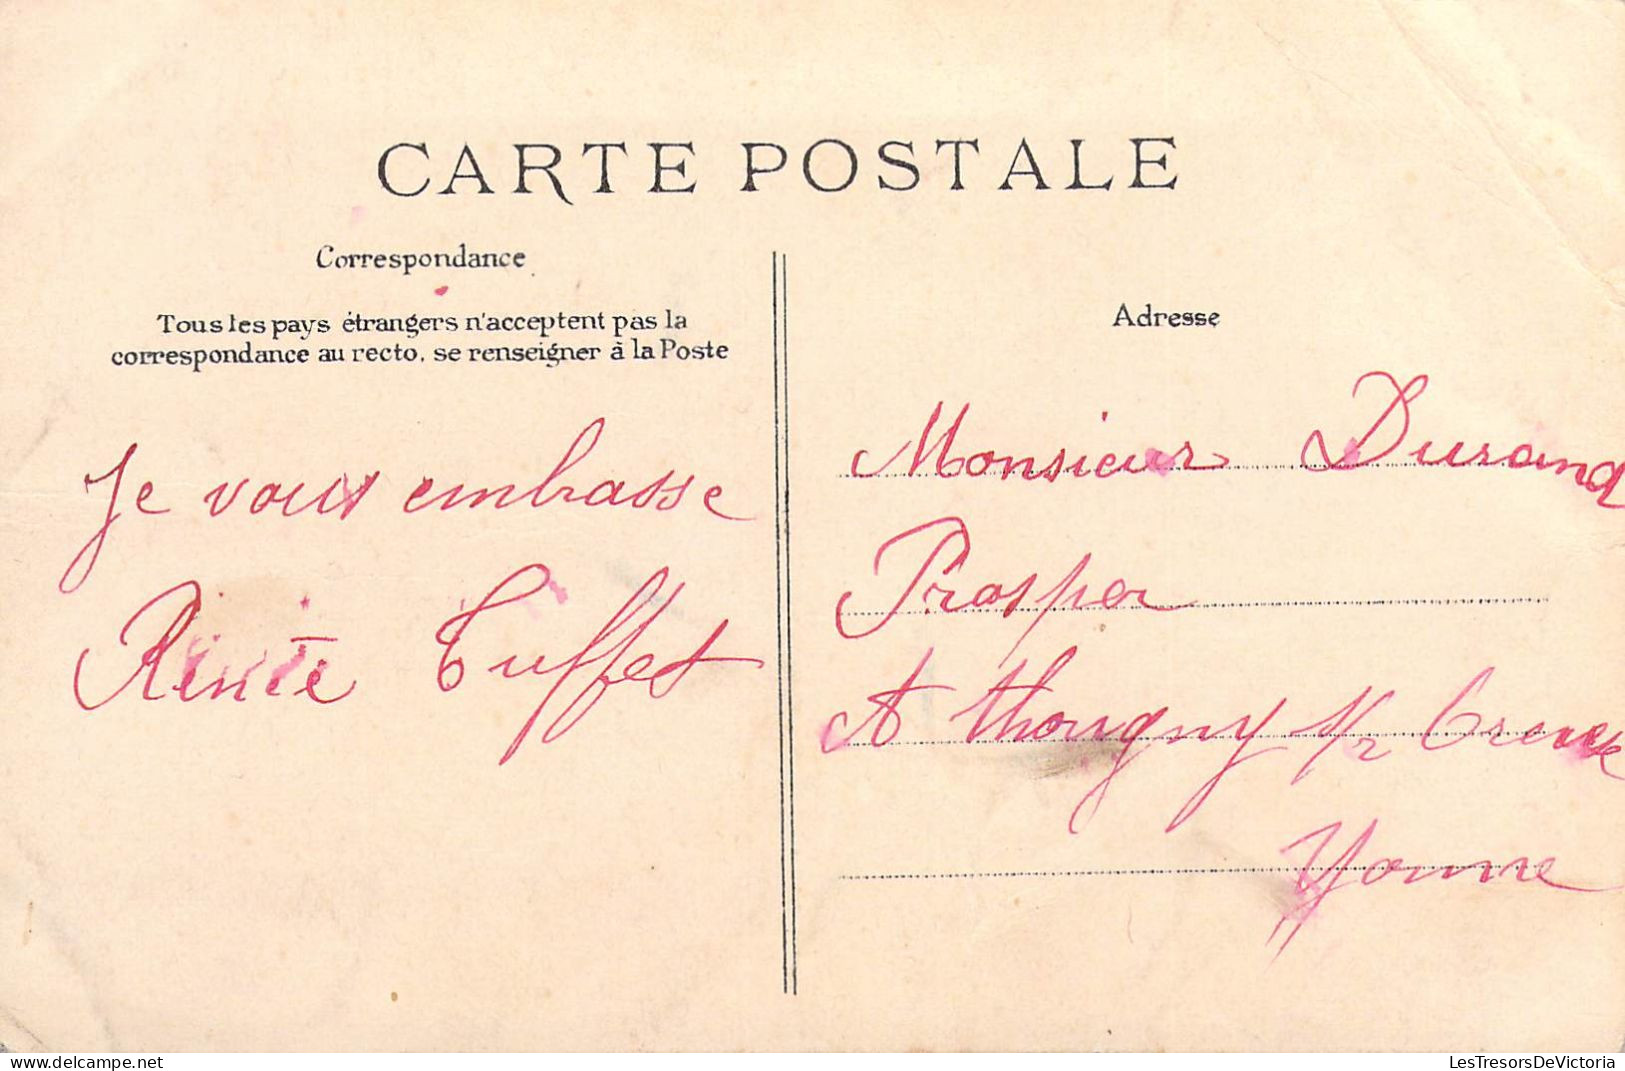 CARTE POSTALE
Correspondance
Tous les pays étrangers n'acceptent pas la
correspondance au recto, se renseigner à la Poste
Je vous embrasse
Renée Tuffet
Adresse
Monsieur Durand
Prosper
A thorigny s/r
Yonne
LesTresorsDeVictoria